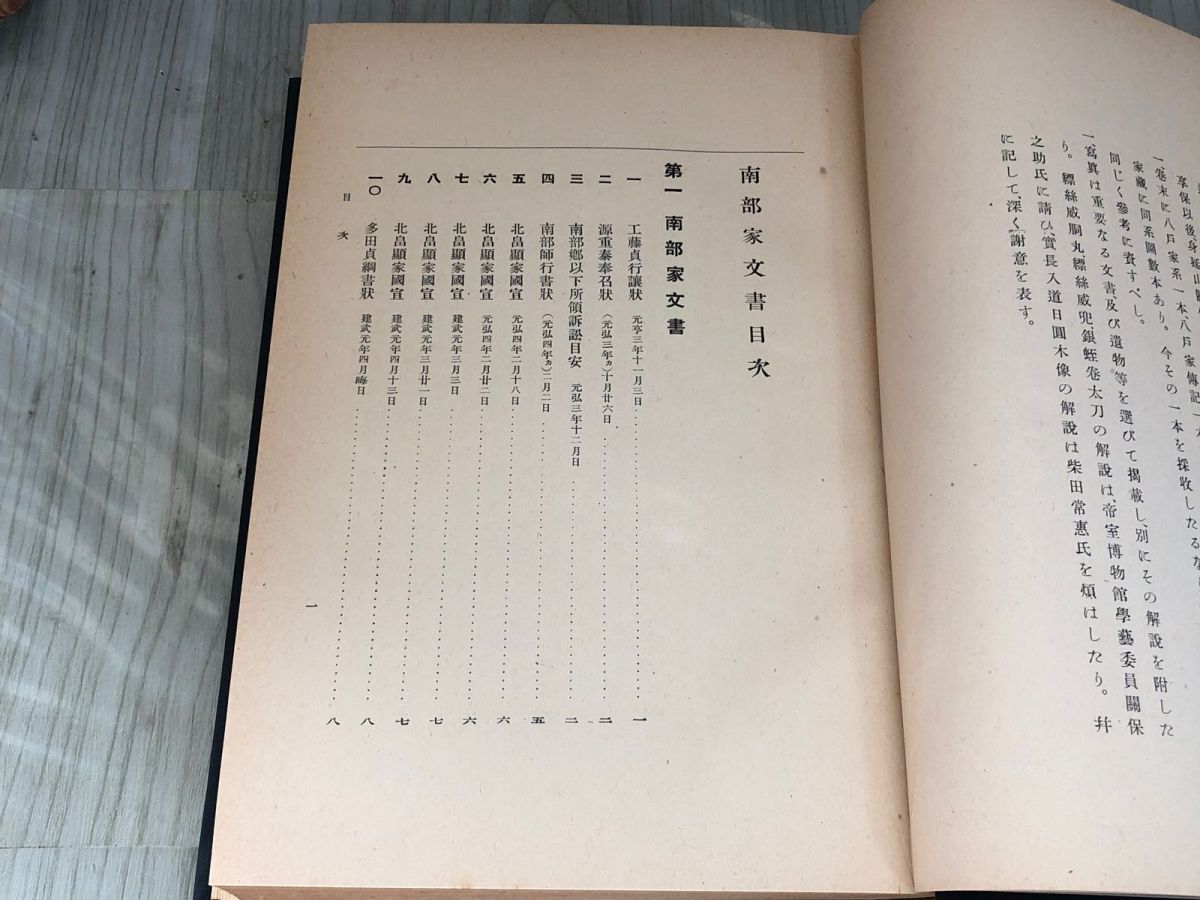 享保以後身延山
一、卷末に八戶家系一本、八戶家傳記一
家藏に同系圖數本あり。今その一本を採收したるな
同じく參考に資すべし。
一、寫眞は重要なる文書及び遺物等を選びて揭載し、別にその解說を附した
り。縹絲威胴丸、縹絲威兜、銀蛭卷太刀の解說は、帝室博物館學藝委員關保
之助氏に請ひ、實長入道日圓木像の解說は柴田常惠氏を煩はしたり。幷
に記して、深く謝意を表す。
南部家文書目次
第一 南部家文書
一 工藤貞行讓狀 元亨三年十一月三日 一
二 源重泰奉召狀 (元弘三年ヵ)十月廿六日 二
三 南部鄕以下所領訴訟目安 元弘三年十二月日 二
四 南部師行書狀 (元弘四年ヵ)二月二日 五
五 北畠顯家國宣 元弘四年二月十八日 六
六 北畠顯家國宣 元弘四年二月廿二日 六
七 北畠顯家國宣 建武元年三月三日 七
八 北畠顯家國宣 建武元年三月廿一日 七
九 北畠顯家國宣 建武元年四月十三日 八
一〇 多田貞綱書狀 建武元年四月晦日 八
目次
一